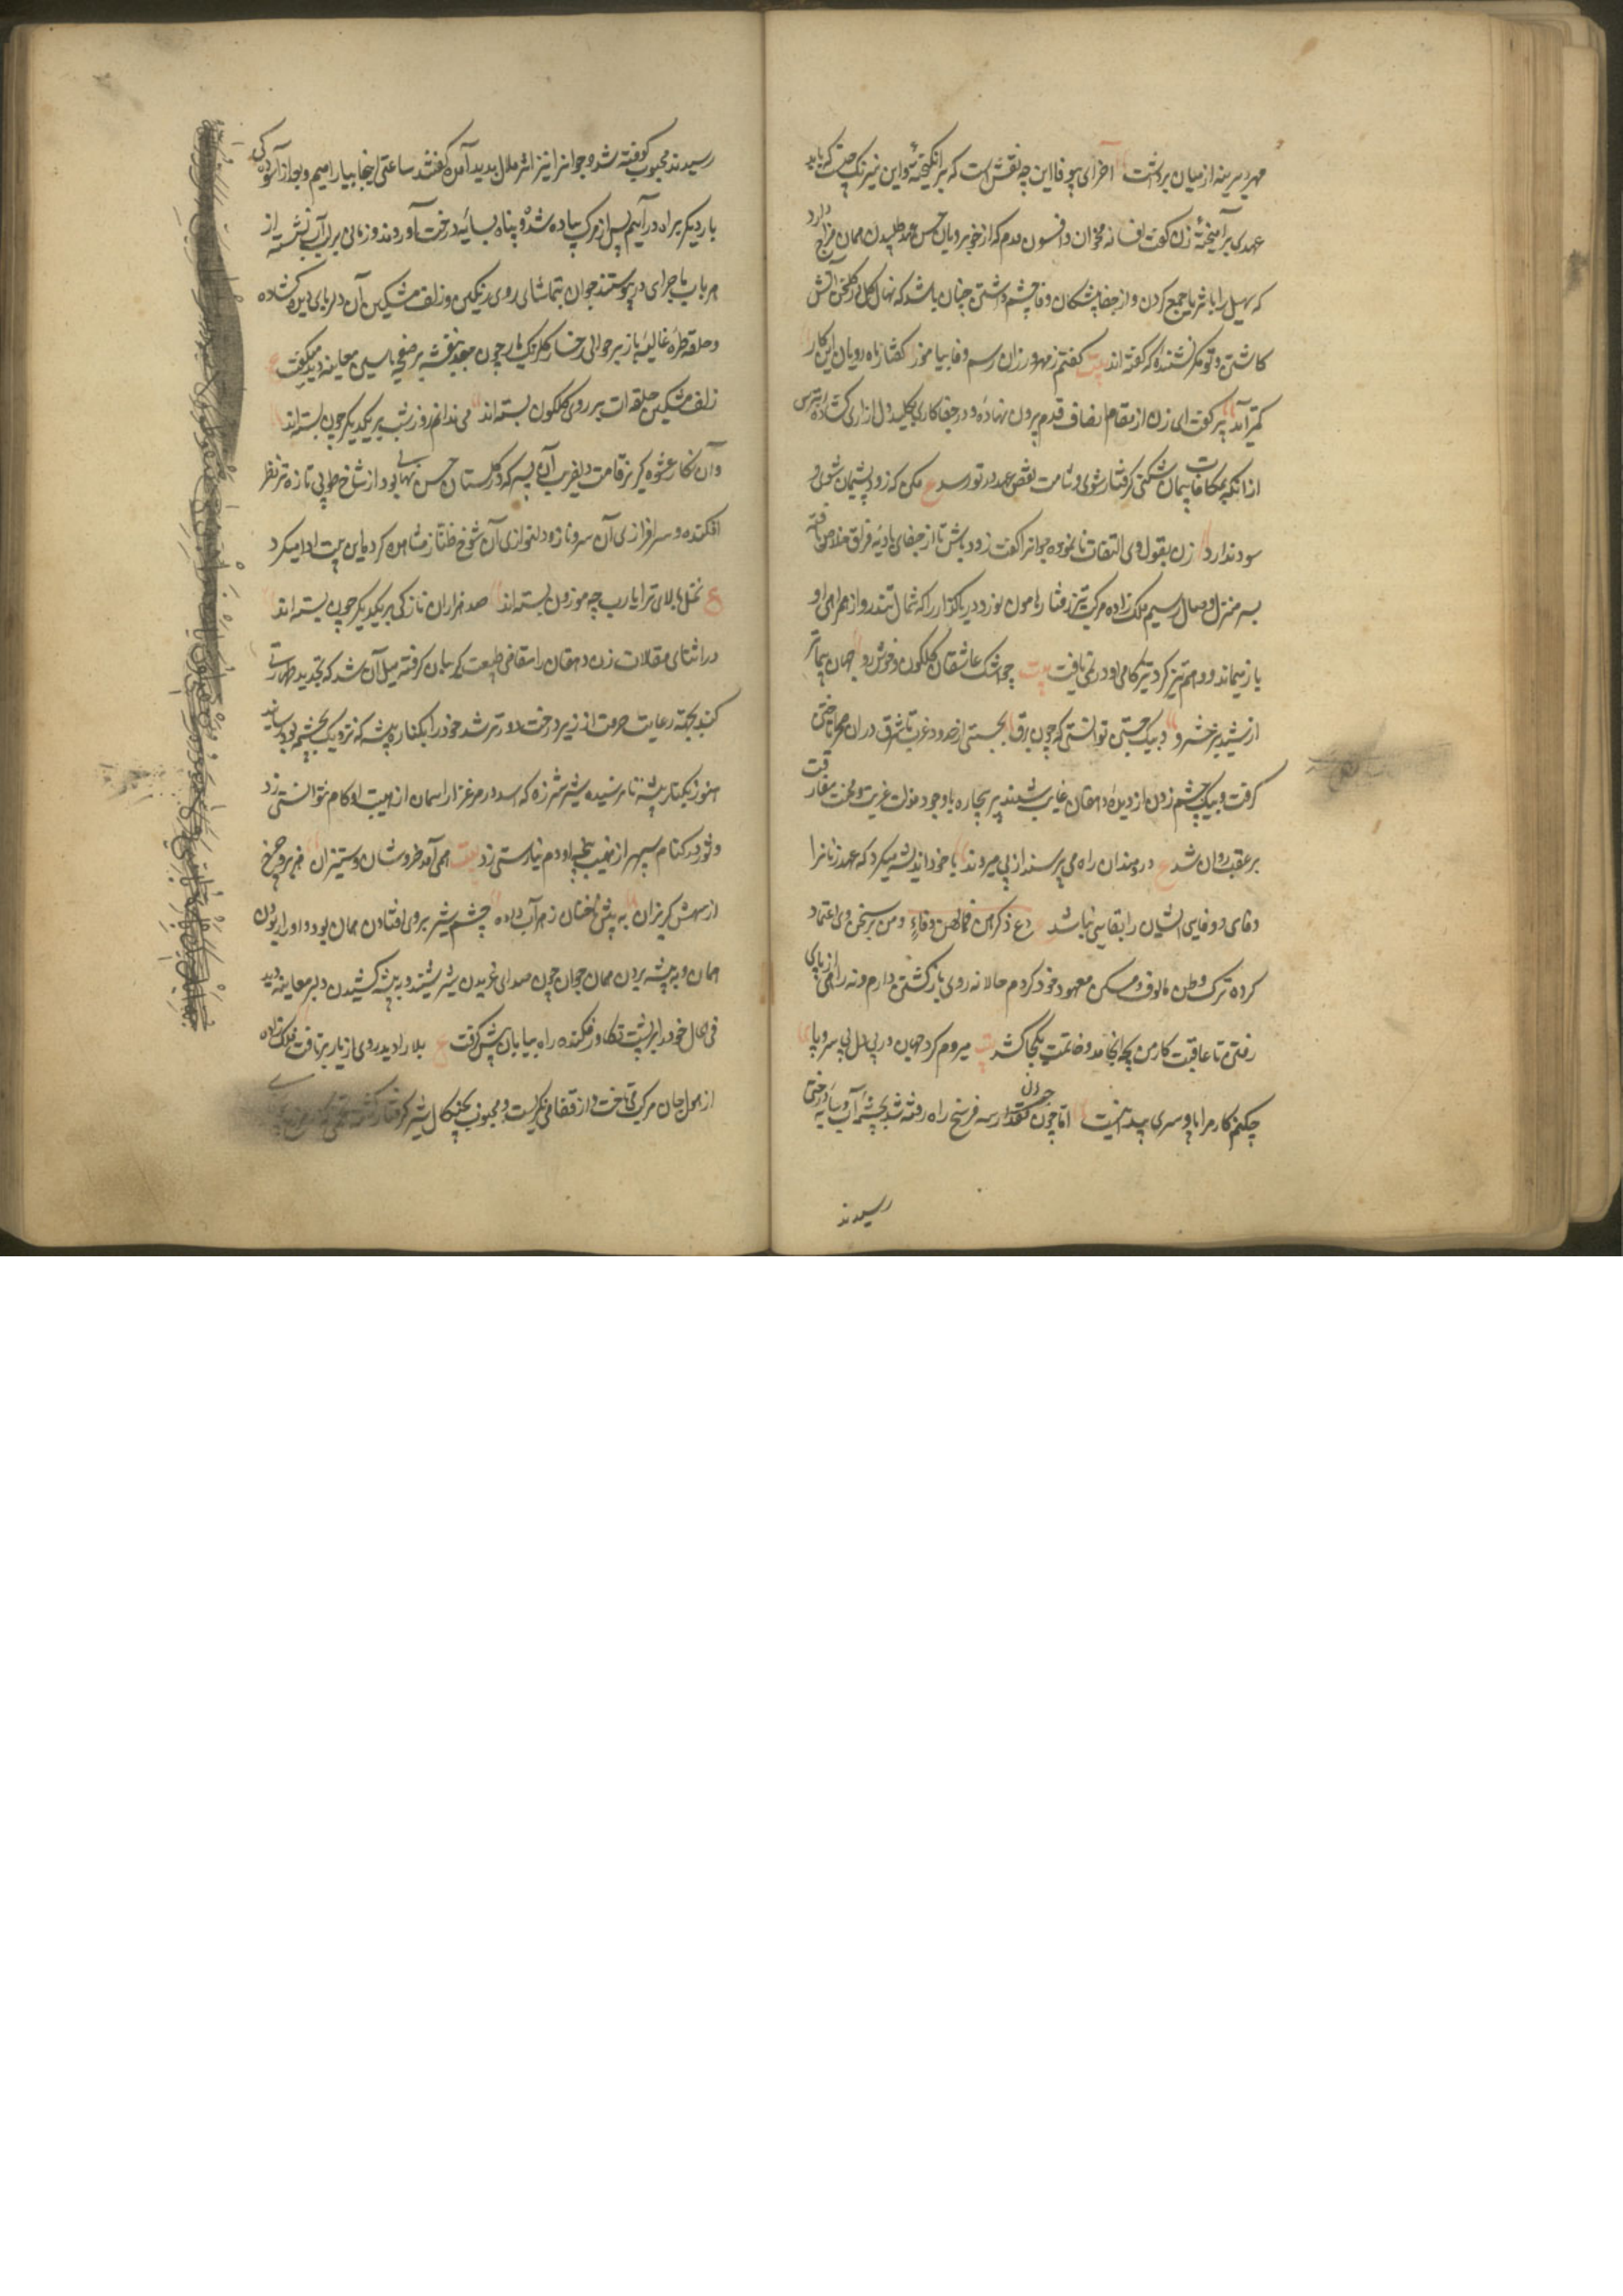 مهر دیرینه از میان برداشت آخر ای بیوفا این چه نقش است که برانگیخته‌ٔ و این نیرنگ چیست که باید
عهدی برآمیخته‌ٔ زن گفت افسانه مخوان و افسون مدم که از خوبرویان حسن عهد طلبیدن همان مزاج دارد
که سهیل را با ثریا جمع کردن و از جفاپیشگان وفا چشم داشتن چنان باشد که نهال گل در گلخن آتش
کاشتن و تو مگر نشنیده‌ٔ که گفته‌اند بیت گفتم ز مهرورزان رسم وفا بیاموز گفتا ز ماه رویان این کار
کمتر آید پیر گفت ای زن از مقام انصاف قدم بیرون نهاده‌ٔ و در جفاکاری بکلید دل آزاری گشاده‌ٔ بترس
از آنکه بمکافات پیمان شکنی گرفتار شوی و شامت نقض عهد در تو رسد ع مکن که زود پشیمان شوی و
سود ندارد زن بقول وی التفات نانموده جوانرا گفت زود باش تا از جفای بادیهٔ فراق خلاص یافته
بسر منزل وصال رسیم ملک زاده مرکب تیز رفتار هامون نورد دریاگذار را که شمال تندرو از همراهی او
باز میماند و وهم تیزگرد تیزگامی او در نمی یافت بیت چو اشک عاشقان گلگون و خوش رو جهان پیماتر
از شبدیز خسرو بیک جستن توانستی که چون برق بجستی از حدود غرب تا شرق در ان صحرا تاختن
گرفت و بیک چشم زدن از دیدهٔ دهقان غایب شدند پیر بیچاره با وجود مذلت غربت و محنت مفارقت
بر عقب روان شد ع دردمندان راه می پرسند از پی میروند با خود اندیشه میکرد که عهد زنانرا
وفای و وفای ایشان را بقایی نباشد ع دع ذکرهن فما لهن وفاء و من بر سخن وی اعتماد
کرده ترک وطن مالوف و مسکن معهود خود کردم حالا نه روی بازگشتن دارم و نه رای از پای
رفتن تا عاقبت کار من بچه انجامد و خاتمت بکجا کشد بیت میروم گرد جهان در پی دل بی سر و پا
چکنم کار مرا پا و سری پیدا نیست اما چون جوان مقدار سه فرسخ راه رفته شد بچشمهٔ آب و سایهٔ درختی
رسیدند
رسیدند محبوب کوفته شد و جوانرا نیز اثر ملال پدید آمد گفتند ساعتی اینجا بیارامیم و بعد از آسودگی
بار دیگر براه درآییم پس از مرکب پیاده شده و پناه بسایهٔ درخت آوردند و زمانی بر لب آب نشسته از
هر باب ماجرای در پیوستند جوان بتماشای روی رنگین و زلف مشکین آن دلربای دیده گشاده
و حلقهٔ طرهٔ غالیه بار بر حوالی رخسار گلرنگ یار چون جعد بنفشه بر صفحهٔ یاسمین معاینه دید میگفت ع
زلف مشکین حلقه ات بر روی گلگون بسته‌اند می ندانم روز و شب بر یکدیگر چون بسته‌اند
وان نگار عشوه گر بر قامت دلفریب آن پسر که در گلستان حسن نهالی بود از شاخ طوبی تازه تر نظر
افکنده و سرافرازی آن سرو ناز و دلنوازی آن شوخ طناز مشاهده کرد باین بیت ادا میکرد
ع نخل بالای ترا یارب چه موزون بسته‌اند صد هزاران نازکی بر یکدیگر چون بسته‌اند
در اثنای مقالات زن دهقان را تقاضی طبیعت گریبان گرفته میل آن شد که تجدید طهارتی
کند بجهة رعایت حرمت از زیر درخت دورتر شد خود را بکناره بیشه که نزدیک بچشمه بود رسانید
هنوز بکنار بیشه نارسیده شیر شرزه که اسد در مرغزار آسمان از هیبت او گام نتوانستی زد
و ثور در کنام سپهر از نهیب پنجهٔ او دم نیارستی زد بیت همی آمد خروشان و ستیزان هژبر چرخ
از سهمش گریزان به پیش ناخنان زهر آب داده چشم شیر بر وی افتادن همان بود و او را ربودن
همان و به بیشه بردن همان جوان چون صدای غریدن شیر شنید و به بیشه کشیدن دلبر معاینه دید
فی الحال خود را بر پشت تکاور فکنده راه بیابان پیش گرفت ع بلا را دید روی از یار برتافت ملک زاده
از هول جان مرکب می تاخت و از قفا می نگریست و محبوب بچنگال شیر گرفتار گشته